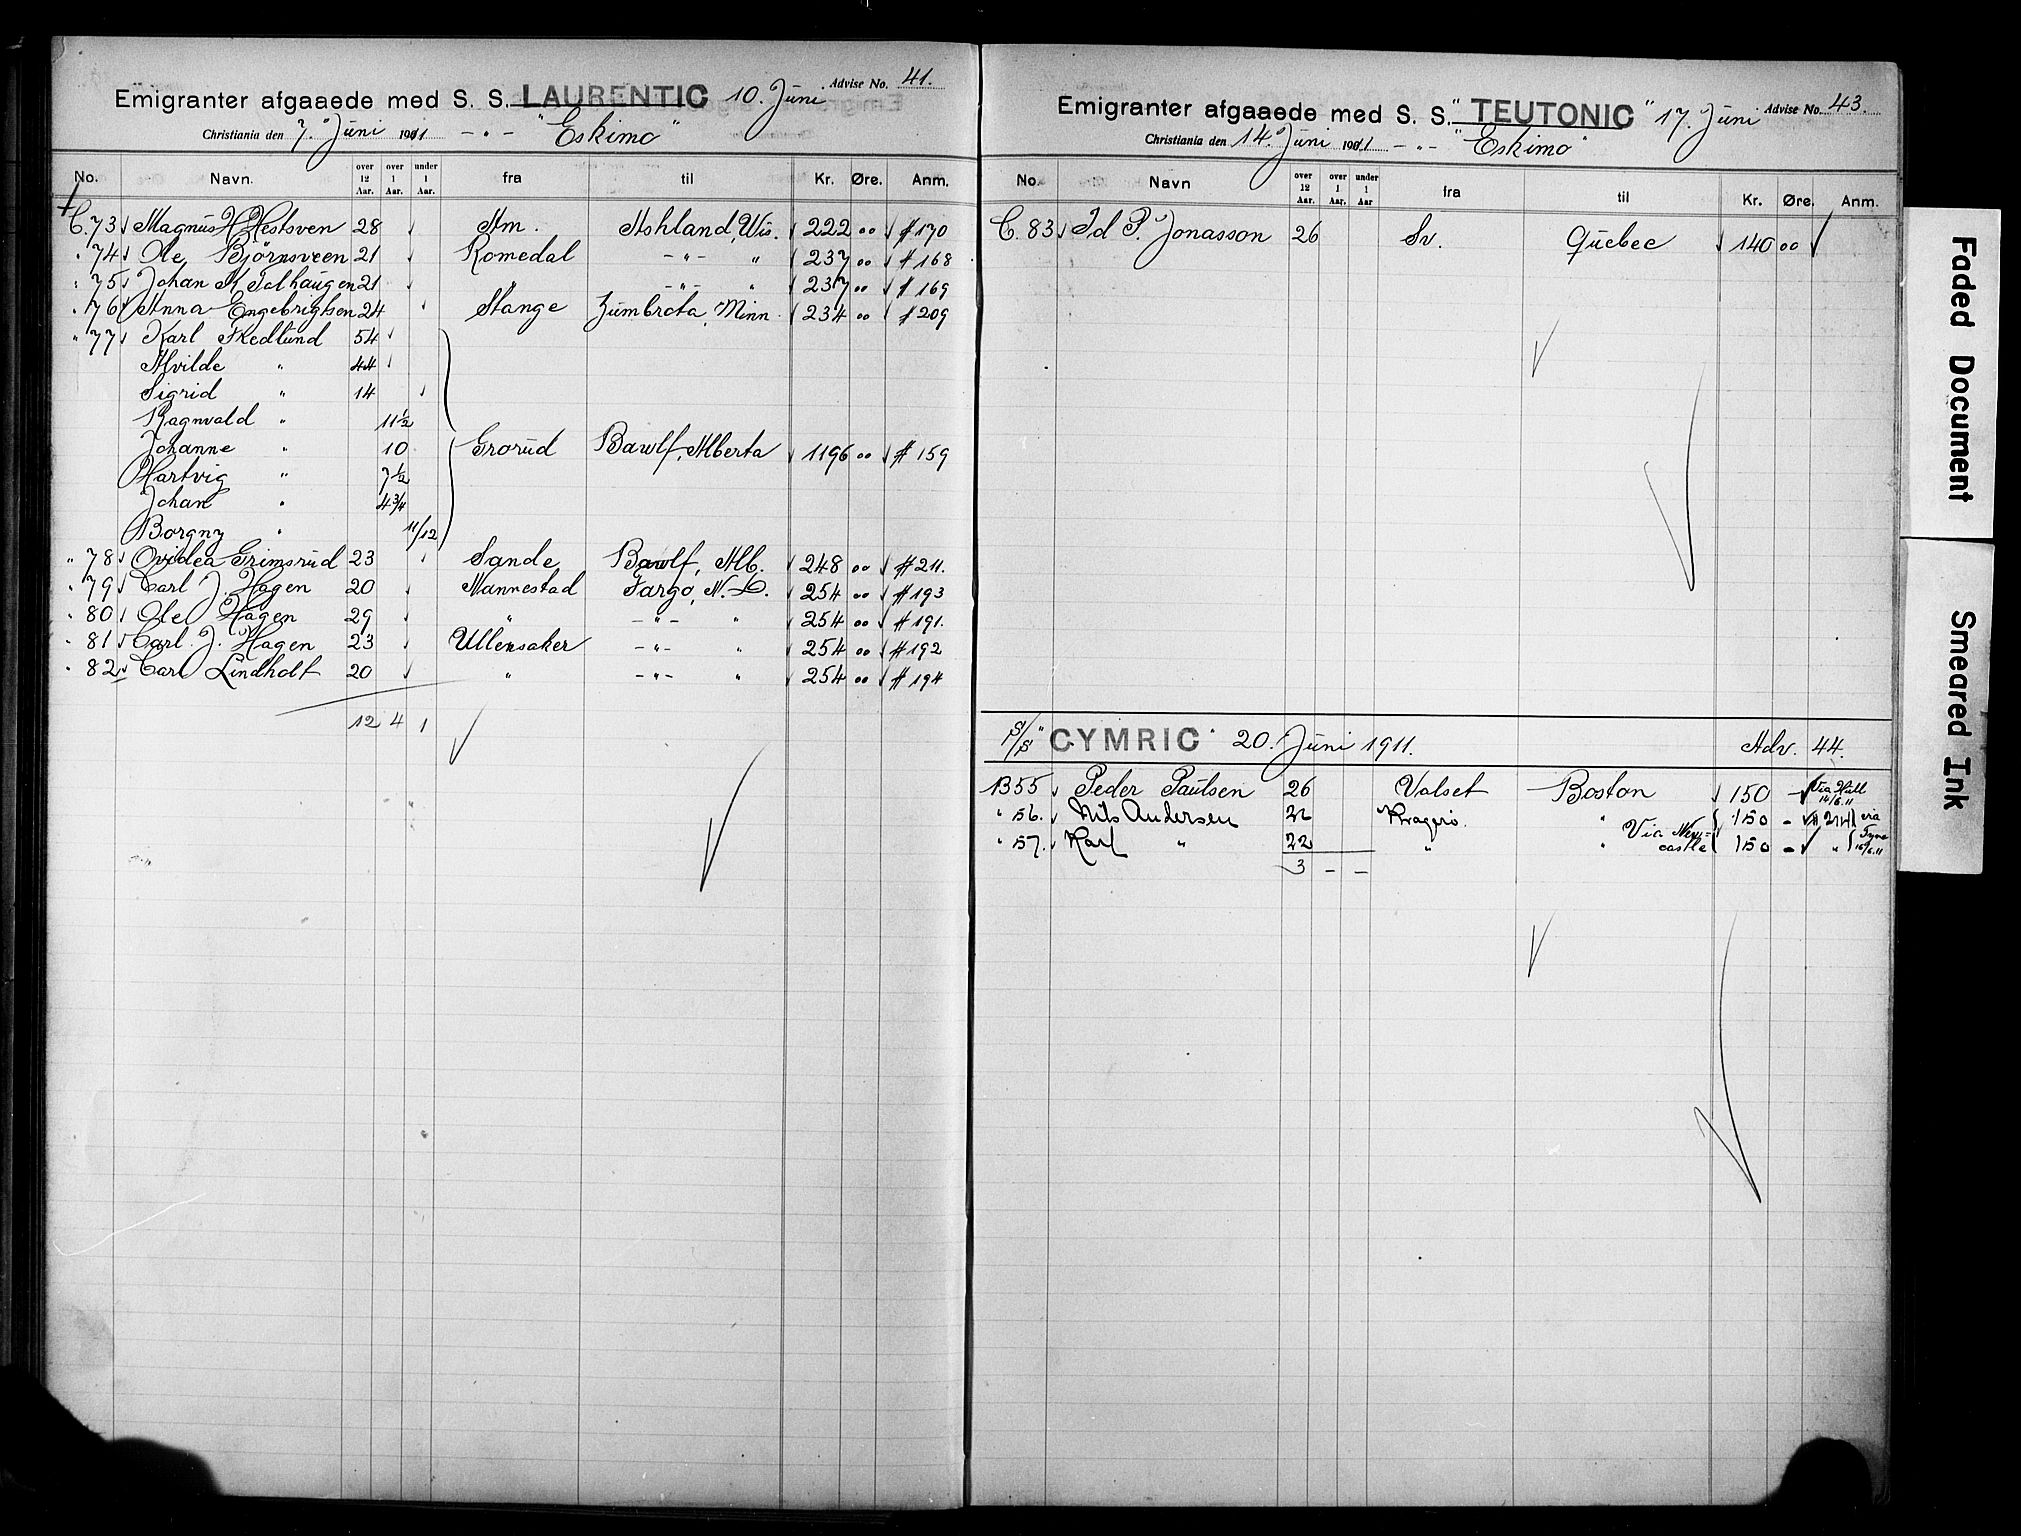 Advise No. 41.
Emigranter afgaaede med S. S. LAURENTIC 10. Juni
Christiania den 7. Juni 1911 - " - "Eskimo"
No. Navn. over 12 Aar. over 1 Aar. under 1 Aar. fra til Kr. Øre. Anm.
C. 73 Magnus H. Hestsven 28 Am. Ashland, Wis. 222 00 # 170
" 74 Ole Bjørnsveen 21 Romedal - " - " 237 00 # 168
" 75 Johan M. Tolhaugen 21 - " - " 237 00 # 169
" 76 Anna Engebrigtsen 24 Stange Zumbrota, Minn. 234 00 # 209
" 77 Karl Hedlund 54
Alvilde " 44
Sigrid " 14
Ragnvald " 11 1/2
Johanne " 10 Grorud Bawlf, Alberta 1196 00 # 159
Hartvig " 7 1/2
Johan " 4 3/4
Borgny " 11/12
" 78 Ovidea Grimsrud 23 Sande Bawlf, Alb. 248 00 # 211.
" 79 Carl J. Hagen 20 Mannestad Fargo, N. D. 254 00 # 193
" 80 Ole Hagen 29 " - " - " 254 00 # 191.
" 81 Carl J. Hagen 23 Ullensaker - " - " 254 00 # 192
" 82 Carl Lindholt 20 " - " - " 254 00 # 194
12 4 1
Emigranter afgaaede med S. S. "TEUTONIC" 17. Juni Advise No. 43.
Christiania den 14. Juni 1911 - " - "Eskimo"
No. Navn over 12 Aar. over 1 Aar. under 1 Aar fra til Kr. Øre. Anm.
C. 83 Id P. Jonasson 26 Sv. Quebec 140 00
S/S "CYMRIC" 20. Juni 1911. Adv. 44.
B55 Peder Paulsen 26 Valset Boston 150 - Via Hull 14/6.11
" 56. Nils Andersen 22 Kragerø. " Via New- 150 - # 214 via
" 57. Karl " 22 " " castle 150 - " Tyne 16/6.11
3 - -
Faded Document
Smeared Ink